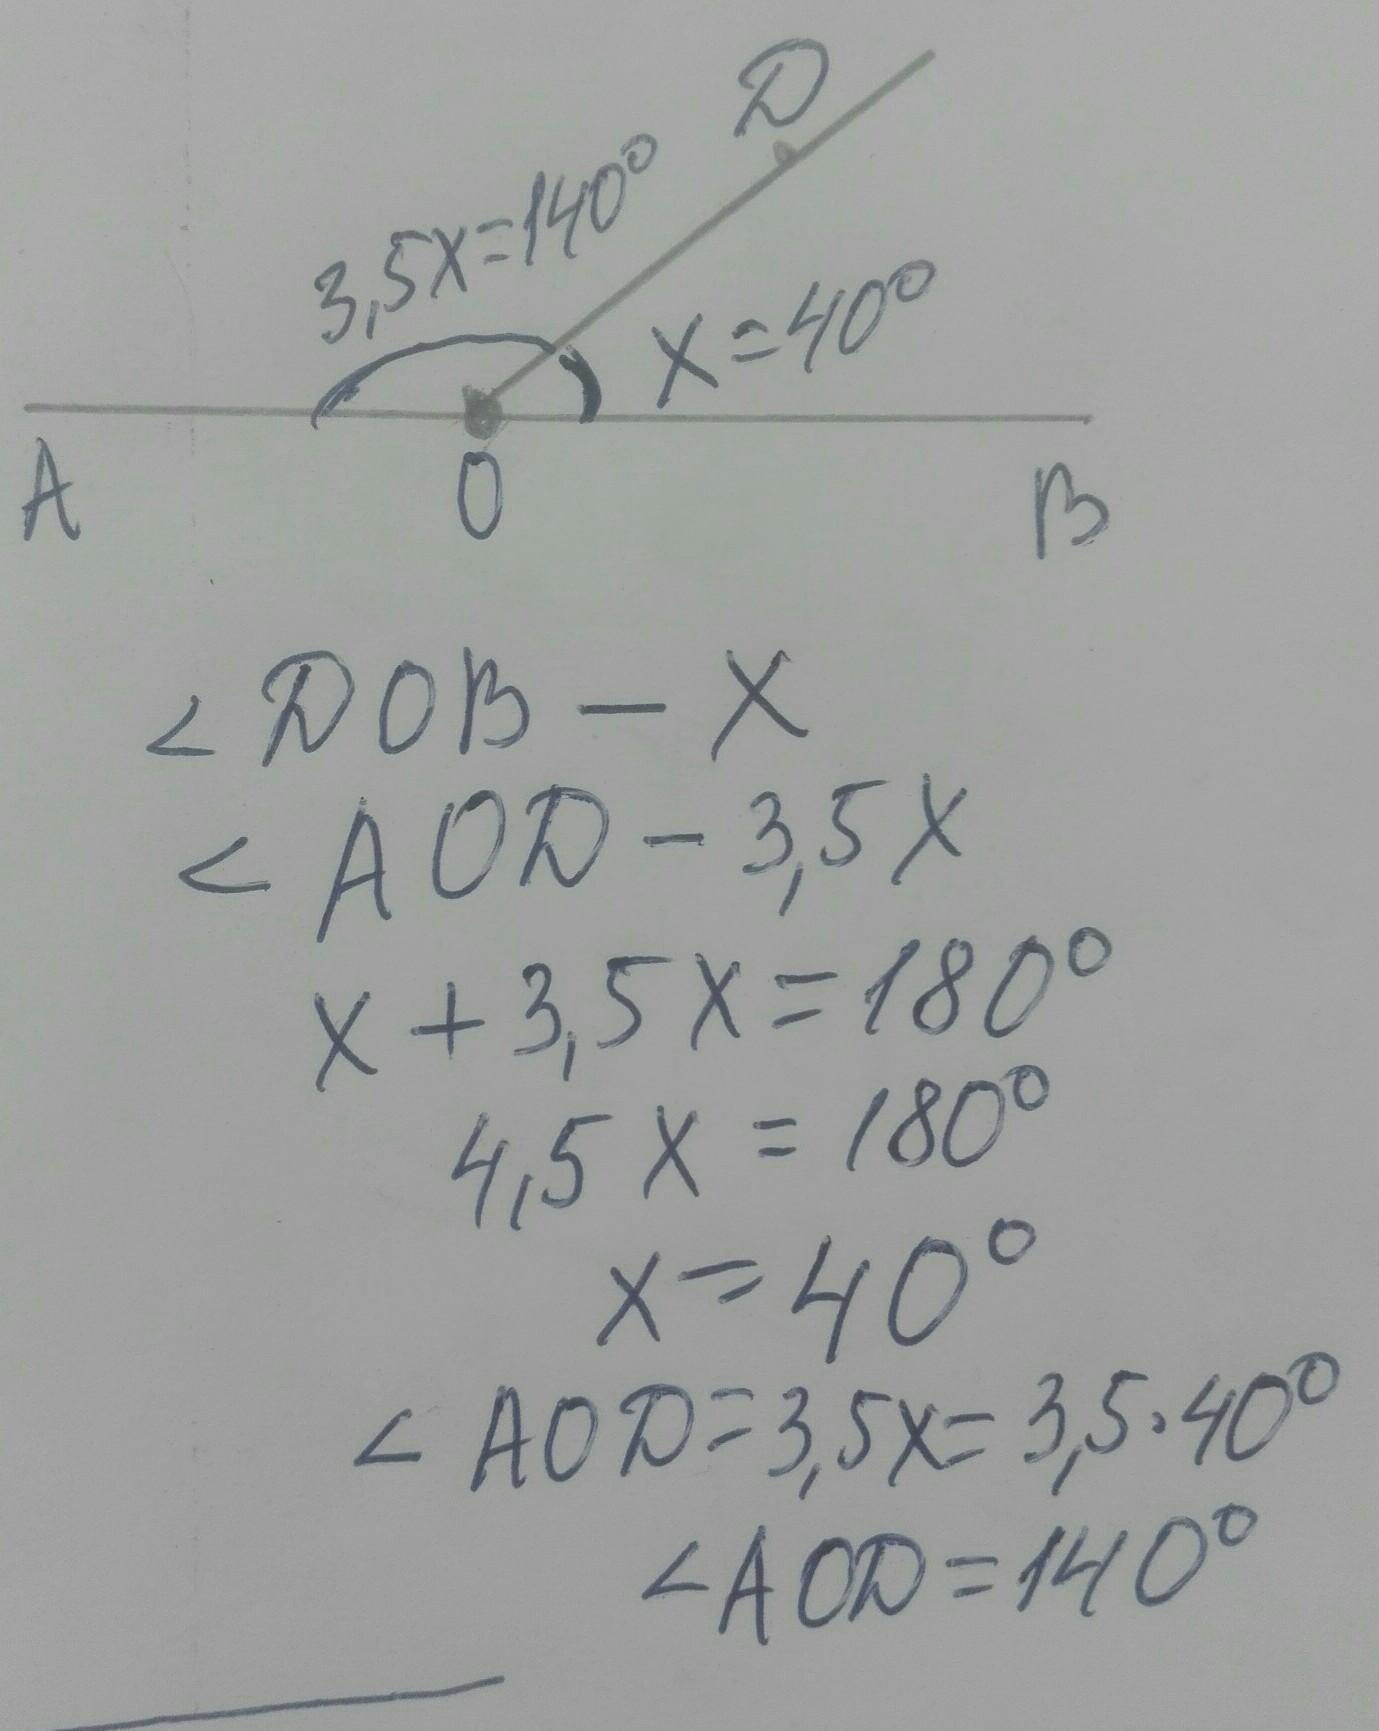 D
3,5x=140°
x=40°
A
O
B
<DOB - x
<AOD - 3,5x
x+3,5x=180°
4,5x=180°
x=40°
<AOD=3,5x=3,5·40°
<AOD=140°